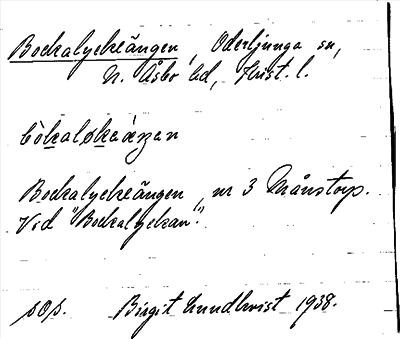 Bockalyckeängen, Oderljunga sn,
N. Åsbo hd, Krist. l.
bòkaløkeáŋen
Bockalyckeängen, nr 3 Månstorp.
Vid "Bockalyckan".
sOp. Birgit Lundkvist 1938.